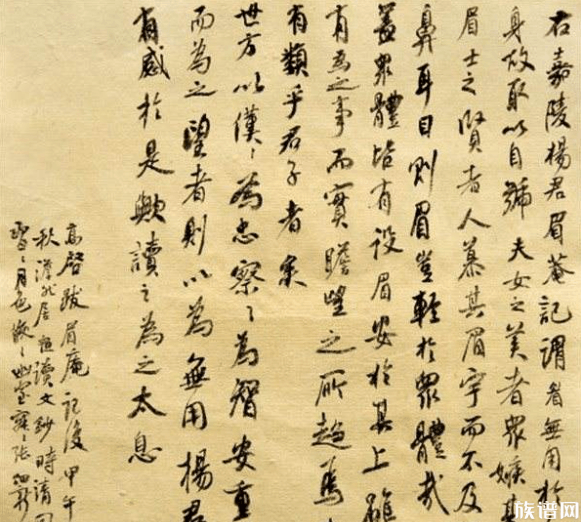 右嘉陵楊君眉菴記謂眉無用於
身故取以自號夫女之美者衆嫉其
眉士之賢者人慕其眉宇而不及
鼻耳目則眉豈輕於衆體哉
蓋衆體皆有役眉安於其上雖
有為之事而實瞻望之所趨焉
有類乎君子者矣
世方以僕〻為忠察〻為智安重
而為之望者則以為無用楊君
有感於是歟讀之為之太息
高啓跋眉庵記後甲午
秋居讀文鈔時清
月色幽室張
族谱网